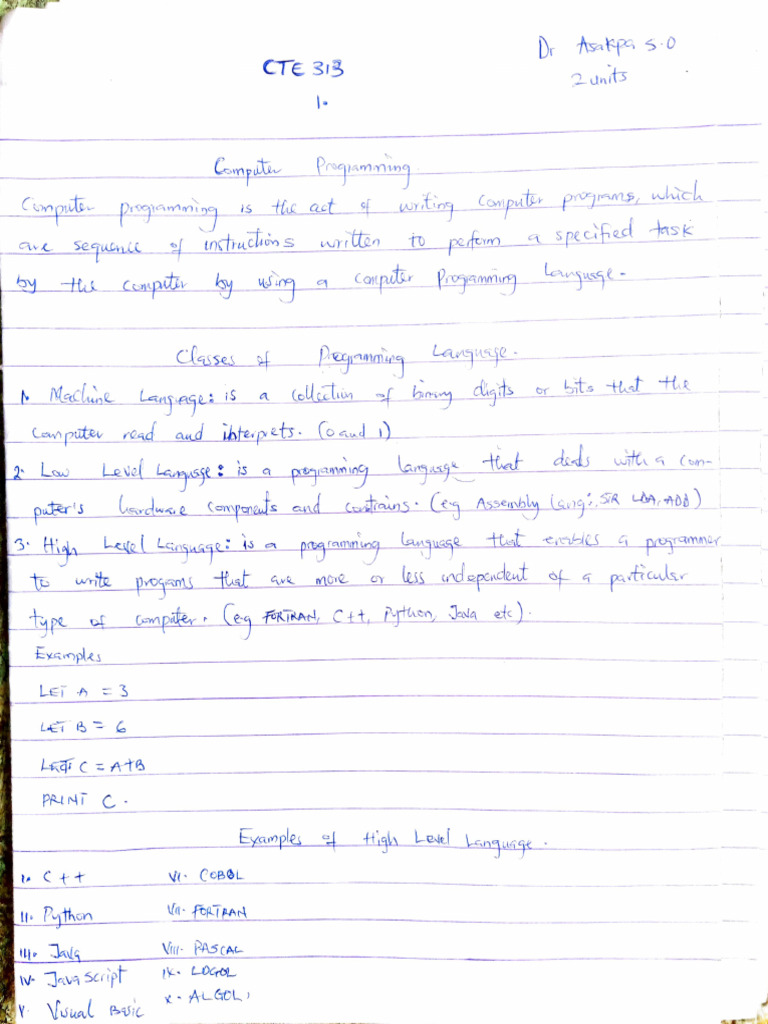 Dr Asakpa S.O
CTE 313
2 units
1.
Computer Programming
Computer programming is the act of writing computer programs, which
are sequence of instructions written to perform a specified task
by the computer by using a computer Programming Language.
Classes of Programming Language.
1. Machine Language: is a collection of binary digits or bits that the
computer read and interprets. (0 and 1)
2. Low Level Language: is a programming language that deals with a com-
puter's hardware components and constrains. (e.g Assembly Lang:, STR LDA, ADD)
3. High Level Language: is a programming language that enables a programmer
to write progams that are more or less independent of a particular
type of computer. (e.g FORTRAN, C++, Python, Java etc).
Examples
LET A = 3
LET B = 6
LET C = A+B
PRINT C.
Examples of High Level Language.
I. C++ VI. COBOL
II. Python VII. FORTRAN
III. Java VIII. PASCAL
IV. JavaScript IX. LOGOL
V. Visual Basic X. ALGOL,